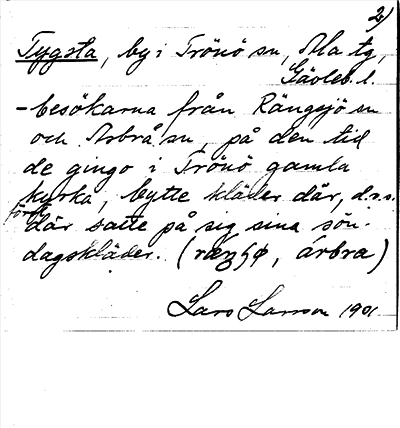 2)
Tygsta, by i Trönö sn, Ala tg,
Gävleb. l.
- besökarna från Rängsjö sn
och Arbrå sn, på den tid
de gingo i Trönö gamla
kyrka, bytte kläder där, d.v.s.
först
där satte på sig sina sön-
dagskläder. ( , årbra)
Lars Larsson 1901